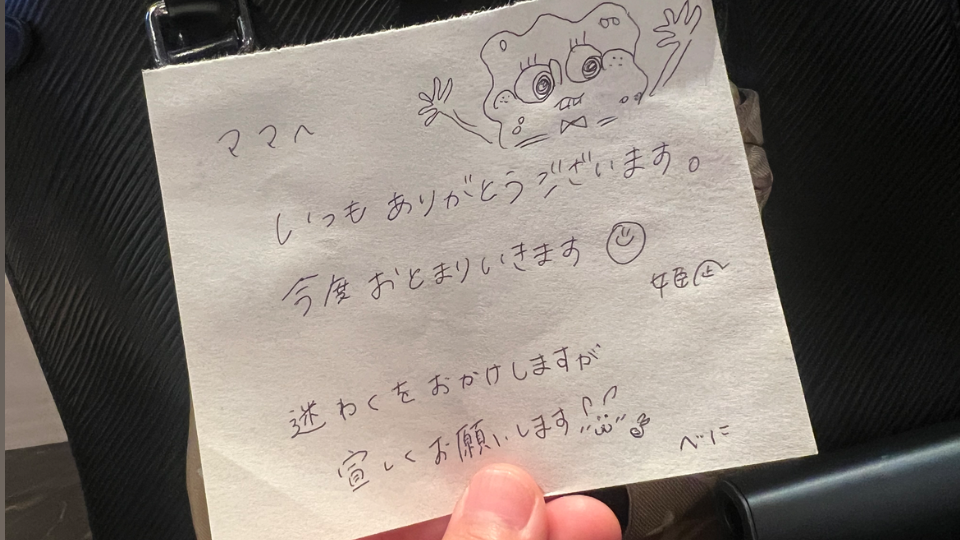 ママへ
いつもありがとうございます。
今度おとまりいきます
姫
迷わくをおかけしますが
宜しくお願いします
べに